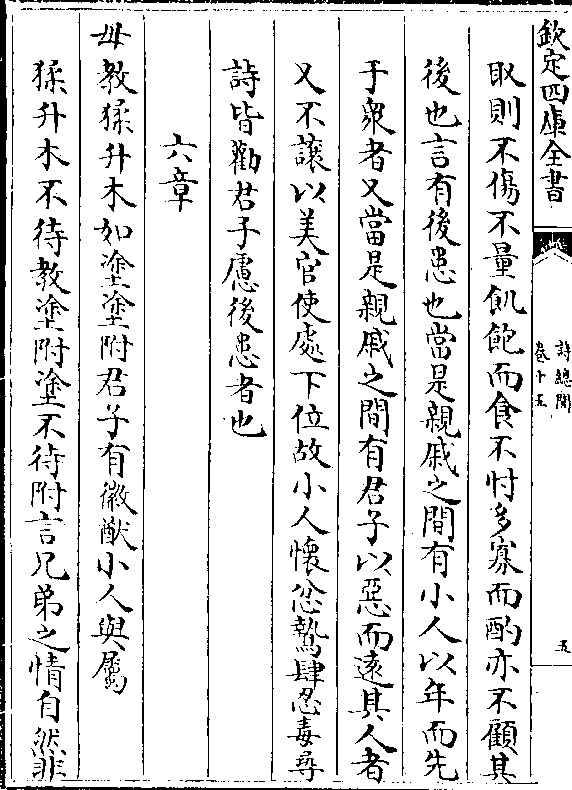 欽定四庫全書
詩總聞
卷十五
五
取則不傷不量飢飽而食不忖多寡而酌亦不顧其
後也言有後患也當是親戚之間有小人以年而先
于衆者又當是親戚之間有君子以惡而遠其人者
又不讓以美官使處下位故小人懷忿鷙肆忍毒尋
詩皆勸君子慮後患者也
六章
毋教猱升木如塗塗附君子有徽猷小人與屬
猱升木不待教塗附塗不待附言兄弟之情自然非